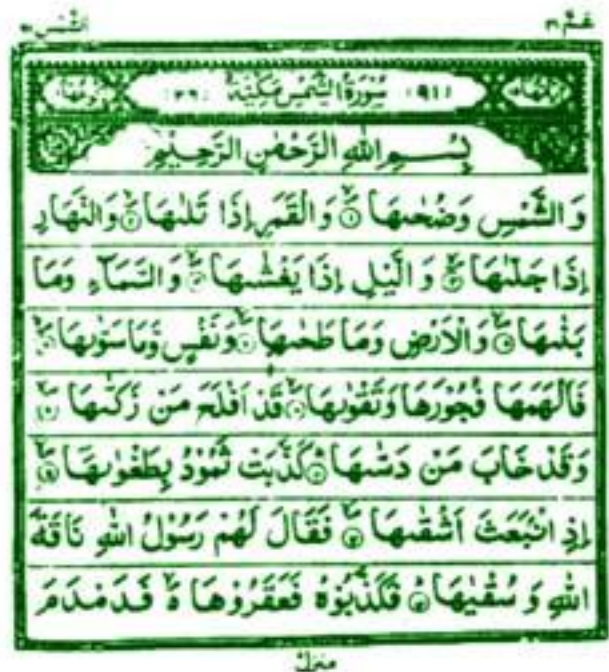 الشمس ٩١ عـمّ ٣٠
اٰيَاتُهَا ١٥ (٩١) سُوْرَةُ الشَّمْسِ مَكِّيَّةٌ (٢٦) رُكُوْعُهَا ١
بِسْمِ اللهِ الرَّحْمٰنِ الرَّحِيْمِ
وَالشَّمْسِ وَضُحٰىهَا ۙ۱ وَالْقَمَرِ اِذَا تَلٰىهَا ۙ۲ وَالنَّهَارِ
اِذَا جَلّٰىهَا ۙ۳ وَالَّيْلِ اِذَا يَغْشٰىهَا ۙ۴ وَالسَّمَآءِ وَمَا
بَنٰىهَا ۙ۵ وَالْاَرْضِ وَمَا طَحٰىهَا ۙ۶ وَنَفْسٍ وَّمَا سَوّٰىهَا ۙ۷
فَاَلْهَمَهَا فُجُوْرَهَا وَتَقْوٰىهَا ۙ۸ قَدْ اَفْلَحَ مَنْ زَكّٰىهَا ۙ۹
وَقَدْ خَابَ مَنْ دَسّٰىهَا ۱۰ كَذَّبَتْ ثَمُوْدُ بِطَغْوٰىهَا ۙ۱۱
اِذِ انْۢبَعَثَ اَشْقٰىهَا ۙ۱۲ فَقَالَ لَهُمْ رَسُوْلُ اللهِ نَاقَةَ
اللهِ وَسُقْيٰهَا ۱۳ فَكَذَّبُوْهُ فَعَقَرُوْهَا ۙ۬ فَدَمْدَمَ
منزل